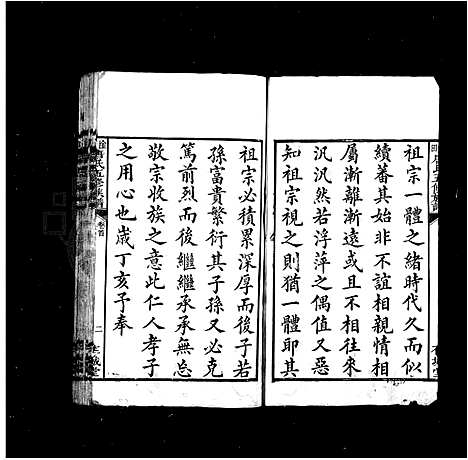 祖宗一體之緒時代久而似
續蕃其始非不誼相親情相
屬漸離漸遠或且不相往來
汎汎然若浮萍之偶值又惡
知祖宗視之則猶一體耶其
祖宗必積累深厚而後子若
孫富貴繁衍其子孫又必克
篤前烈而後繼繼承承無忘
敬宗收族之意此仁人孝子
之用心也歲丁亥予奉
氏五修族譜
卷首
二